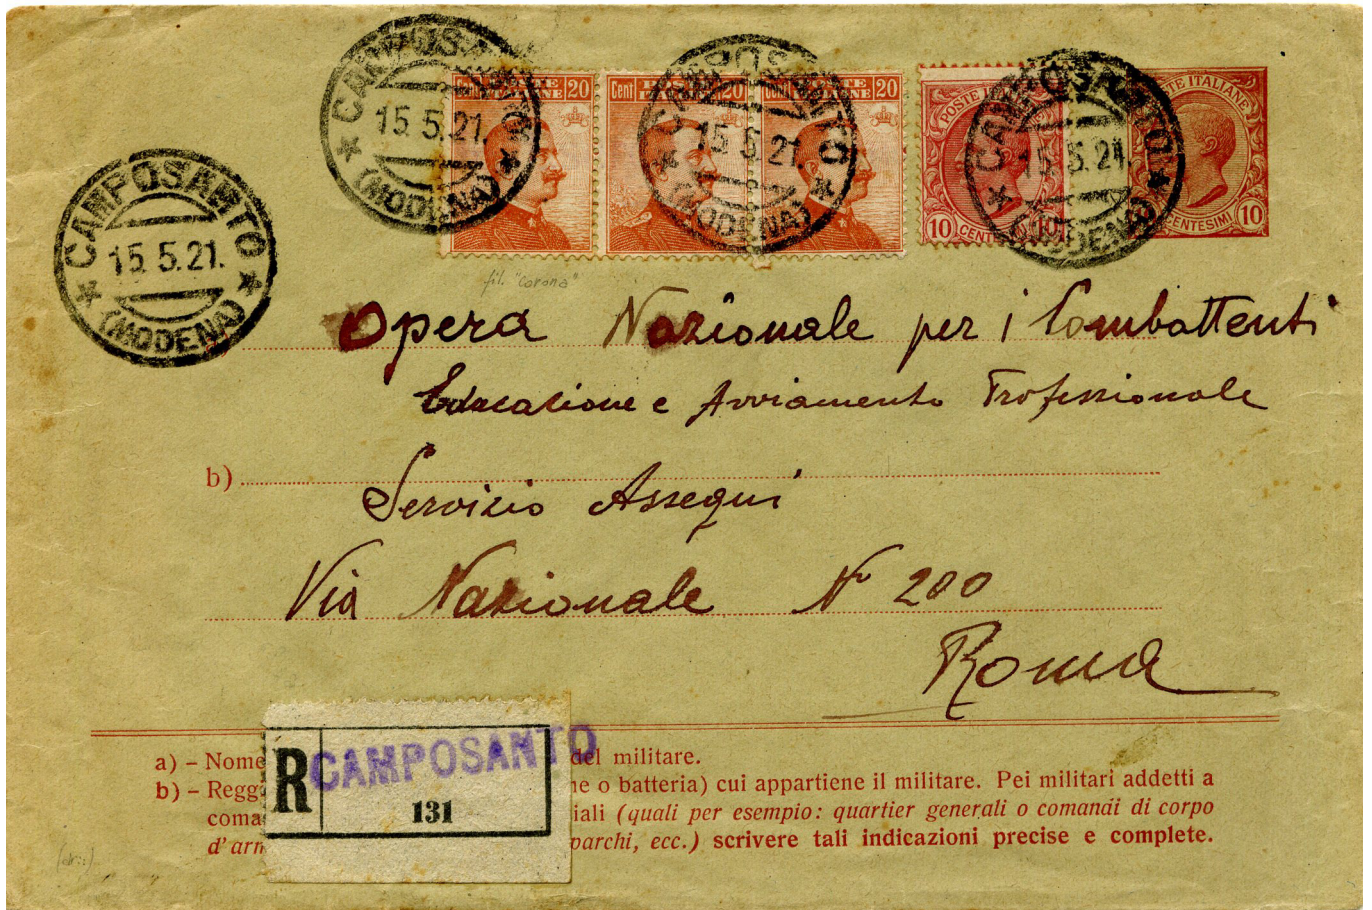 CAMPOSANTO
15.5.21.
(MODENA)
CAMPOSANTO
15.5.21.
(MODENA)
CAMPOSANTO
15.5.21
(MODENA)
CAMPOSANTO
15.5.21
(MODENA)
POSTE 20
ITALIANE
Cent POSTE 20
ITALIANE
Cent POSTE 20
ITALIANE
POSTE ITALIANE
10 CENT 10
POSTE ITALIANE
CENTESIMI 10
fil. "corona"
Opera Nazionale per i Combattenti
Educazione e Avviamento Professionale
b)
Servizio Assegni
Via Nazionale N° 200
Roma
a) – Nome del militare.
b) – Regg e o batteria) cui appartiene il militare. Pei militari addetti a
coma iali (quali per esempio: quartier generali o comandi di corpo
d'arm parchi, ecc.) scrivere tali indicazioni precise e complete.
R CAMPOSANTO
131